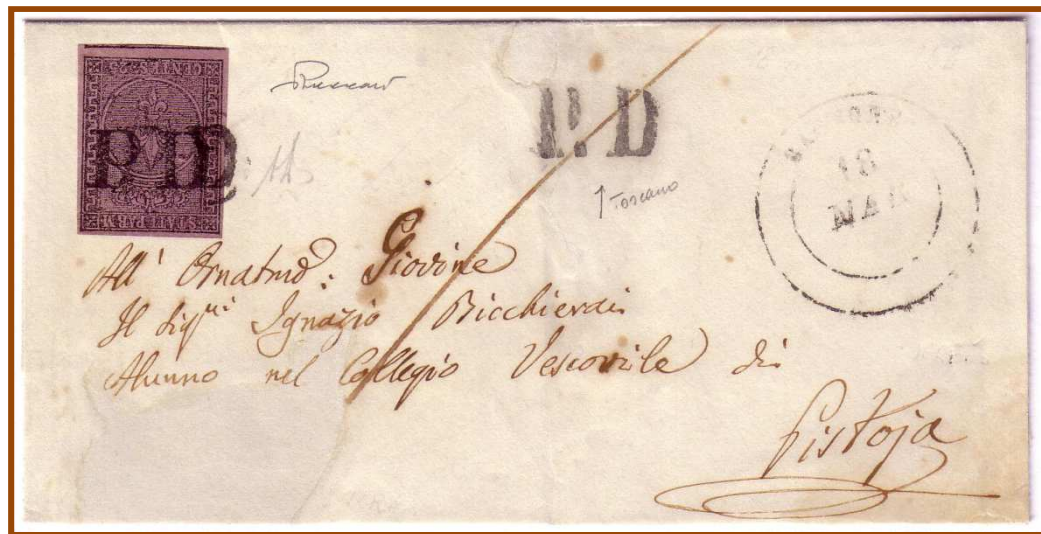 CENTES. 25
STATI PARM.
P. D
P. D
↑ Toscano
18
MAR
All' Ornatmo: Giovine
Il Sigri Ignazio Bicchierai
Alunno nel Collegio Vescovile di
Pistoja